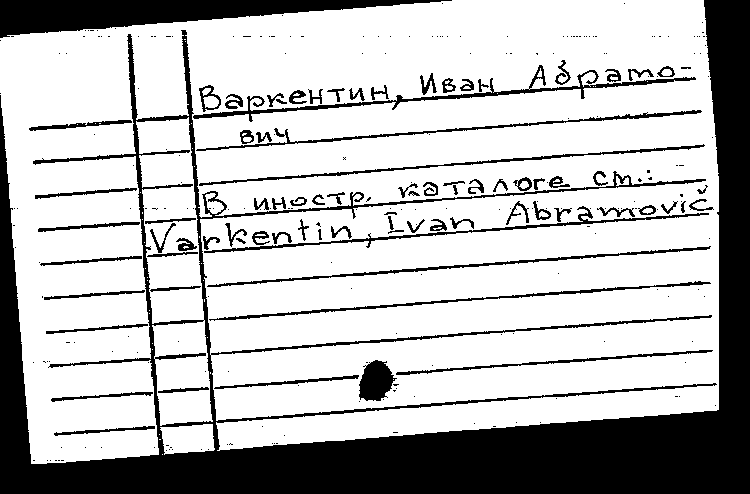 Варкентин, Иван Абрамо-
вич
В иностр. каталоге см.:
Varkentin, Ivan Abramovič